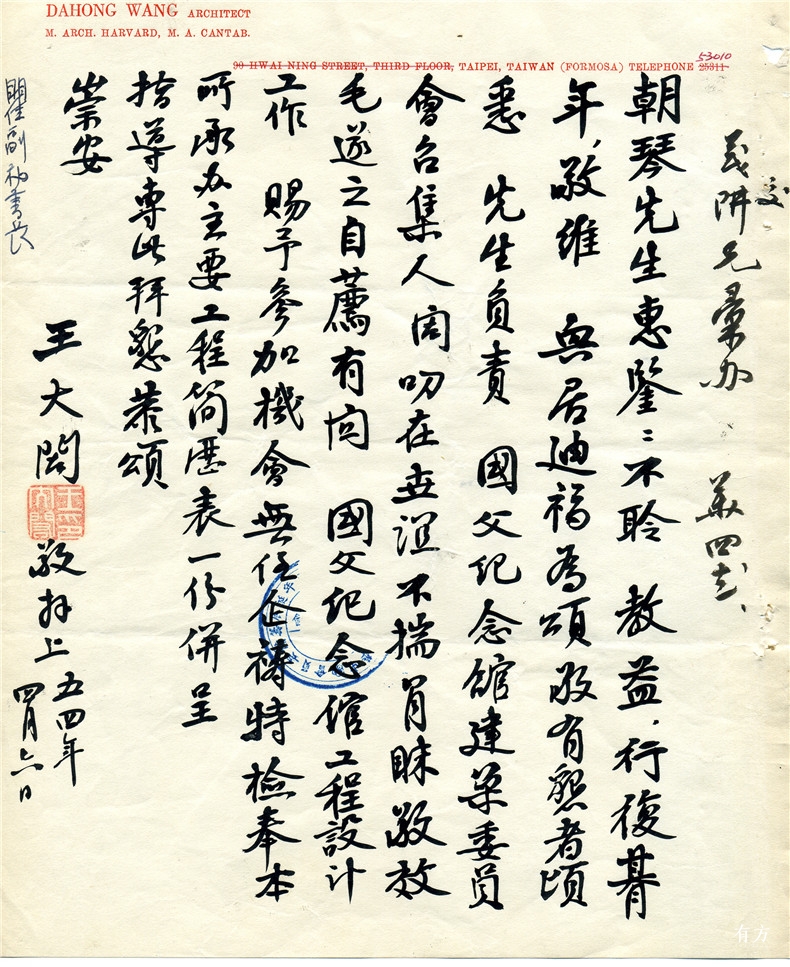 DAHONG WANG ARCHITECT
M. ARCH. HARVARD, M. A. CANTAB.
53010
90 HWAI NING STREET, THIRD FLOOR, TAIPEI, TAIWAN (FORMOSA) TELEPHONE 25311
朝琴先生惠鑒：不聆 教益，行復朞
年，敬維 興居迪福為頌敬有懇者頃
悉 先生負責 國父紀念館建築委員
會召集人閎叨在世誼不揣冒昧敬效
毛遂之自薦有向 國父紀念館工程設計
工作 賜予參加機會無任企禱特檢奉本
所承办主要工程簡歷表一份併呈
指導專此拜懇恭頌
崇安
王大閎 敬拜上 五四年
四月六日
瞿副秘書長
有方